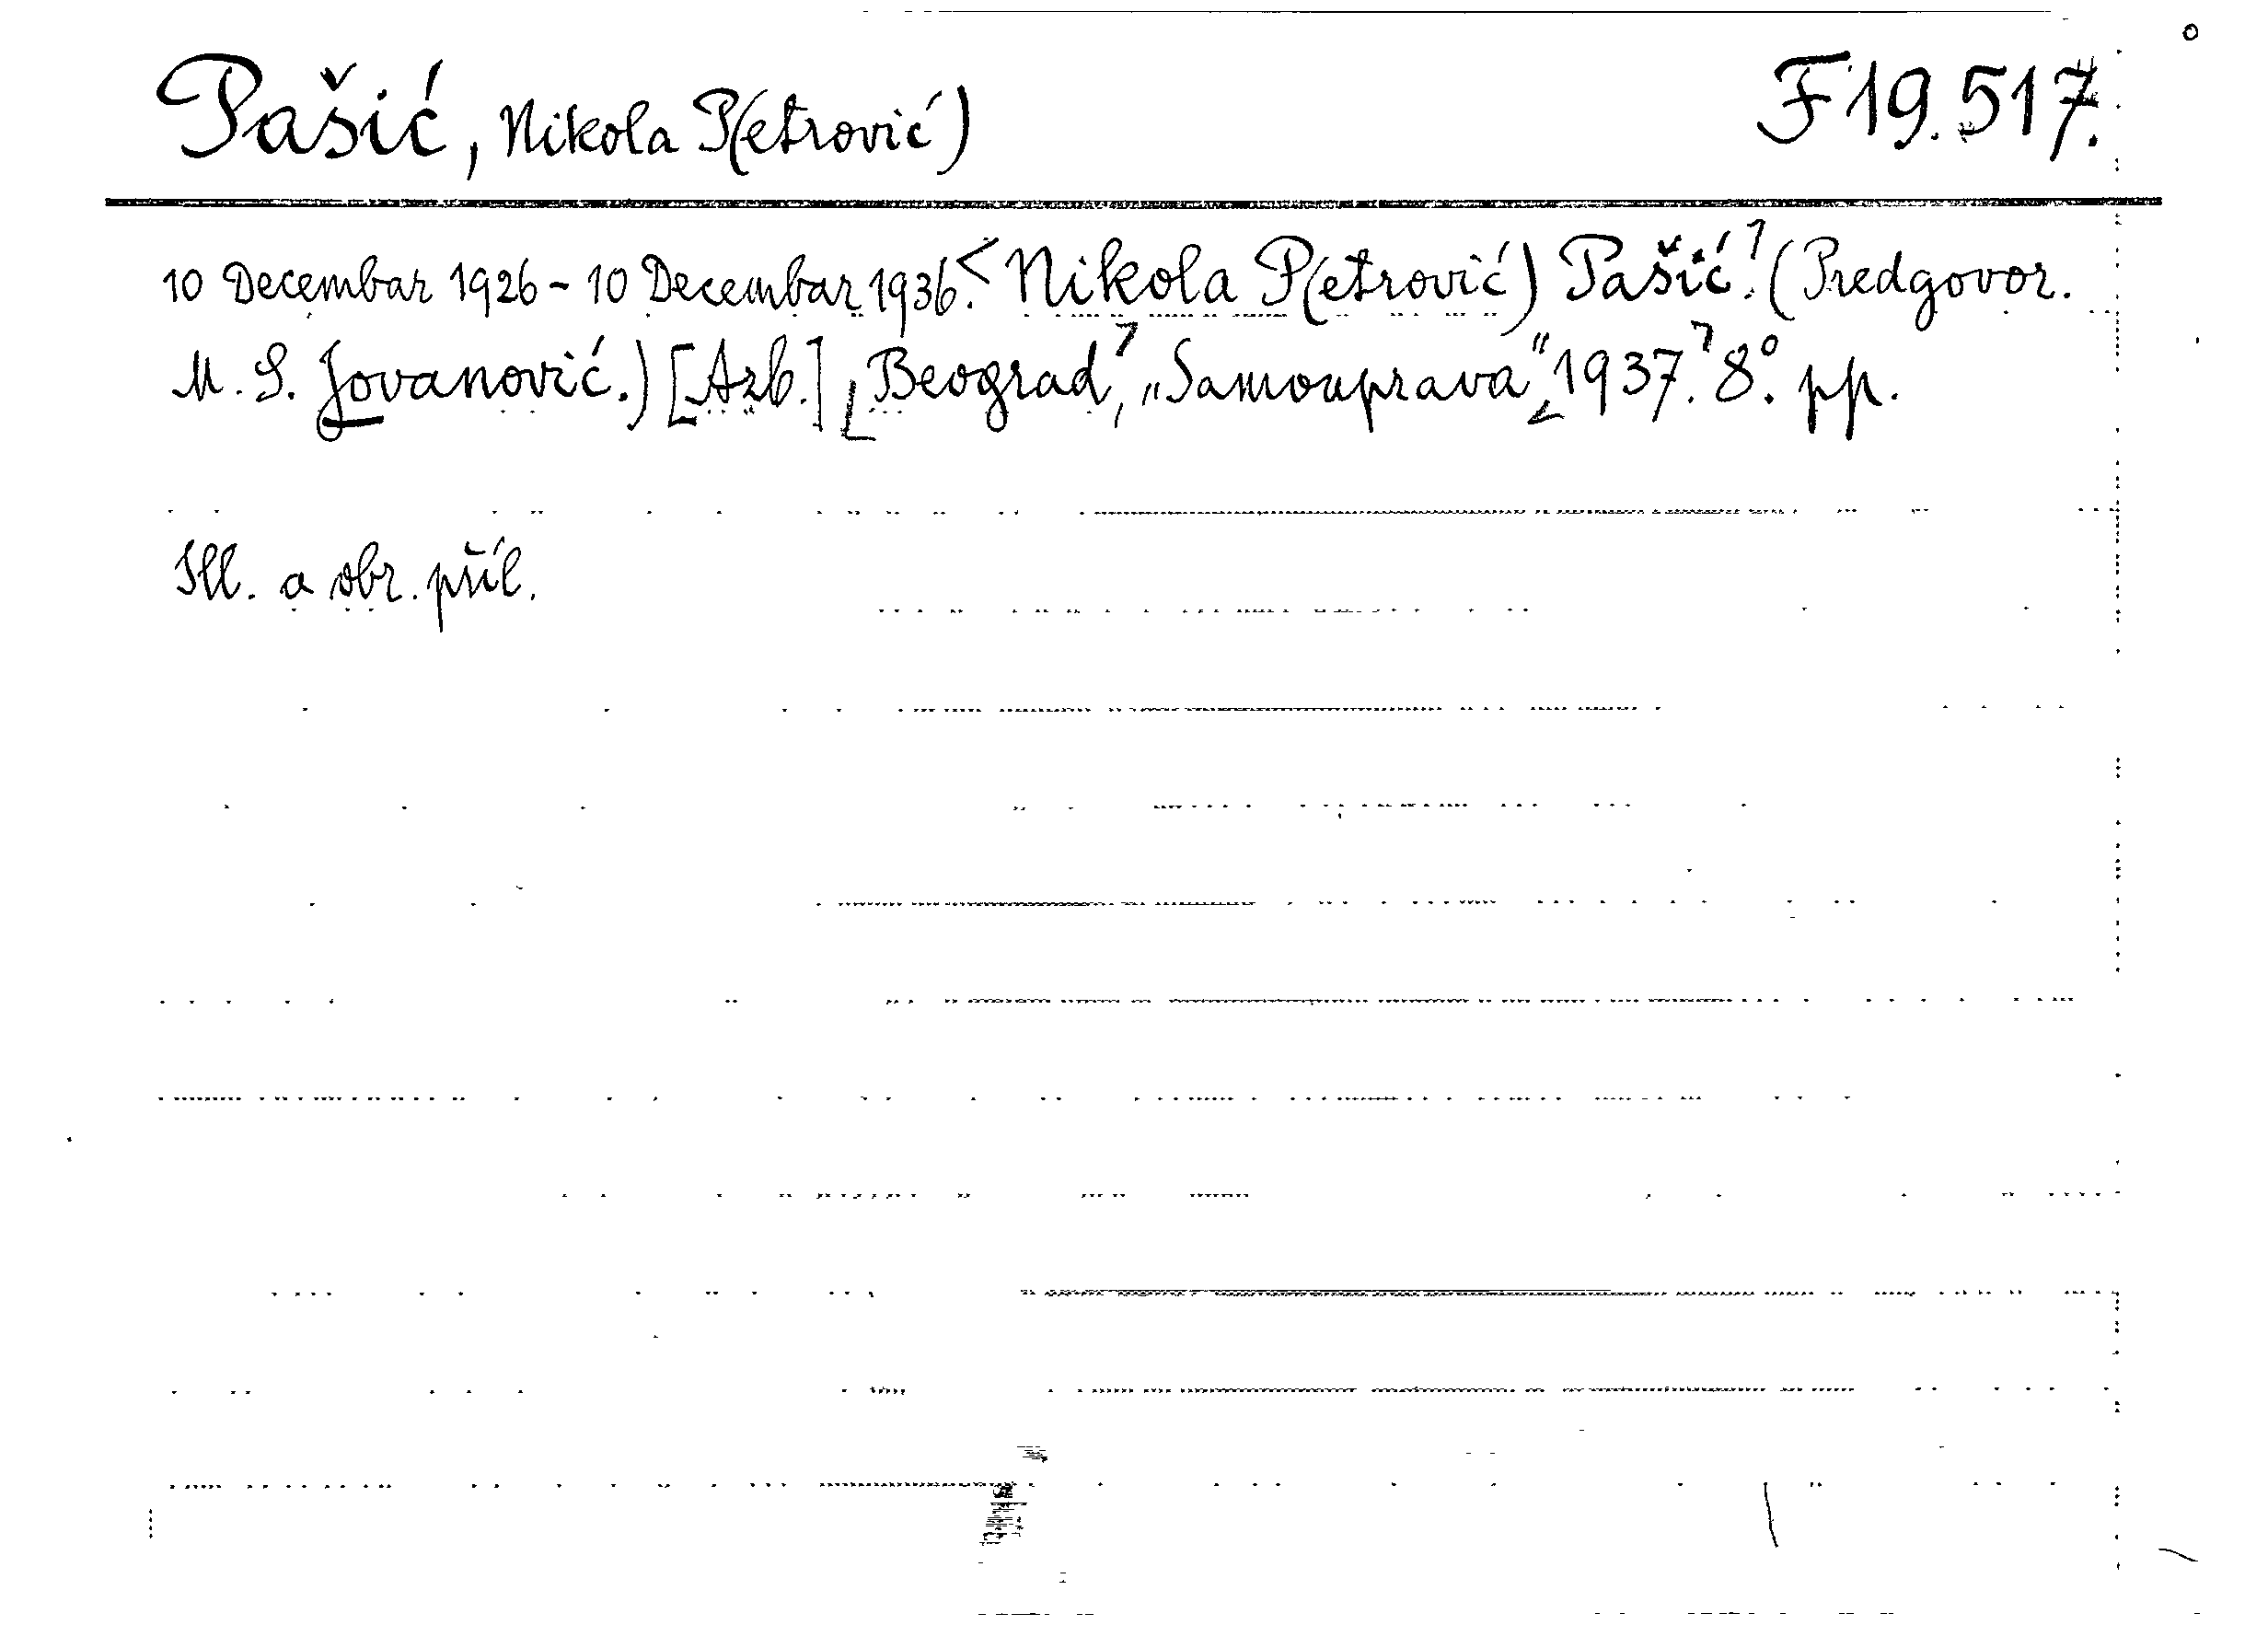 Pašić, Nikola P(etrović) F 19.517.
10 Decembar 1926 - 10 Decembar 1936. Nikola P(etrović) Pašić. (Predgovor.
M. S. Jovanović.) [Azb.] Beograd, „Samouprava" 1937. 8°. pp.
Ill. a obr. příl.